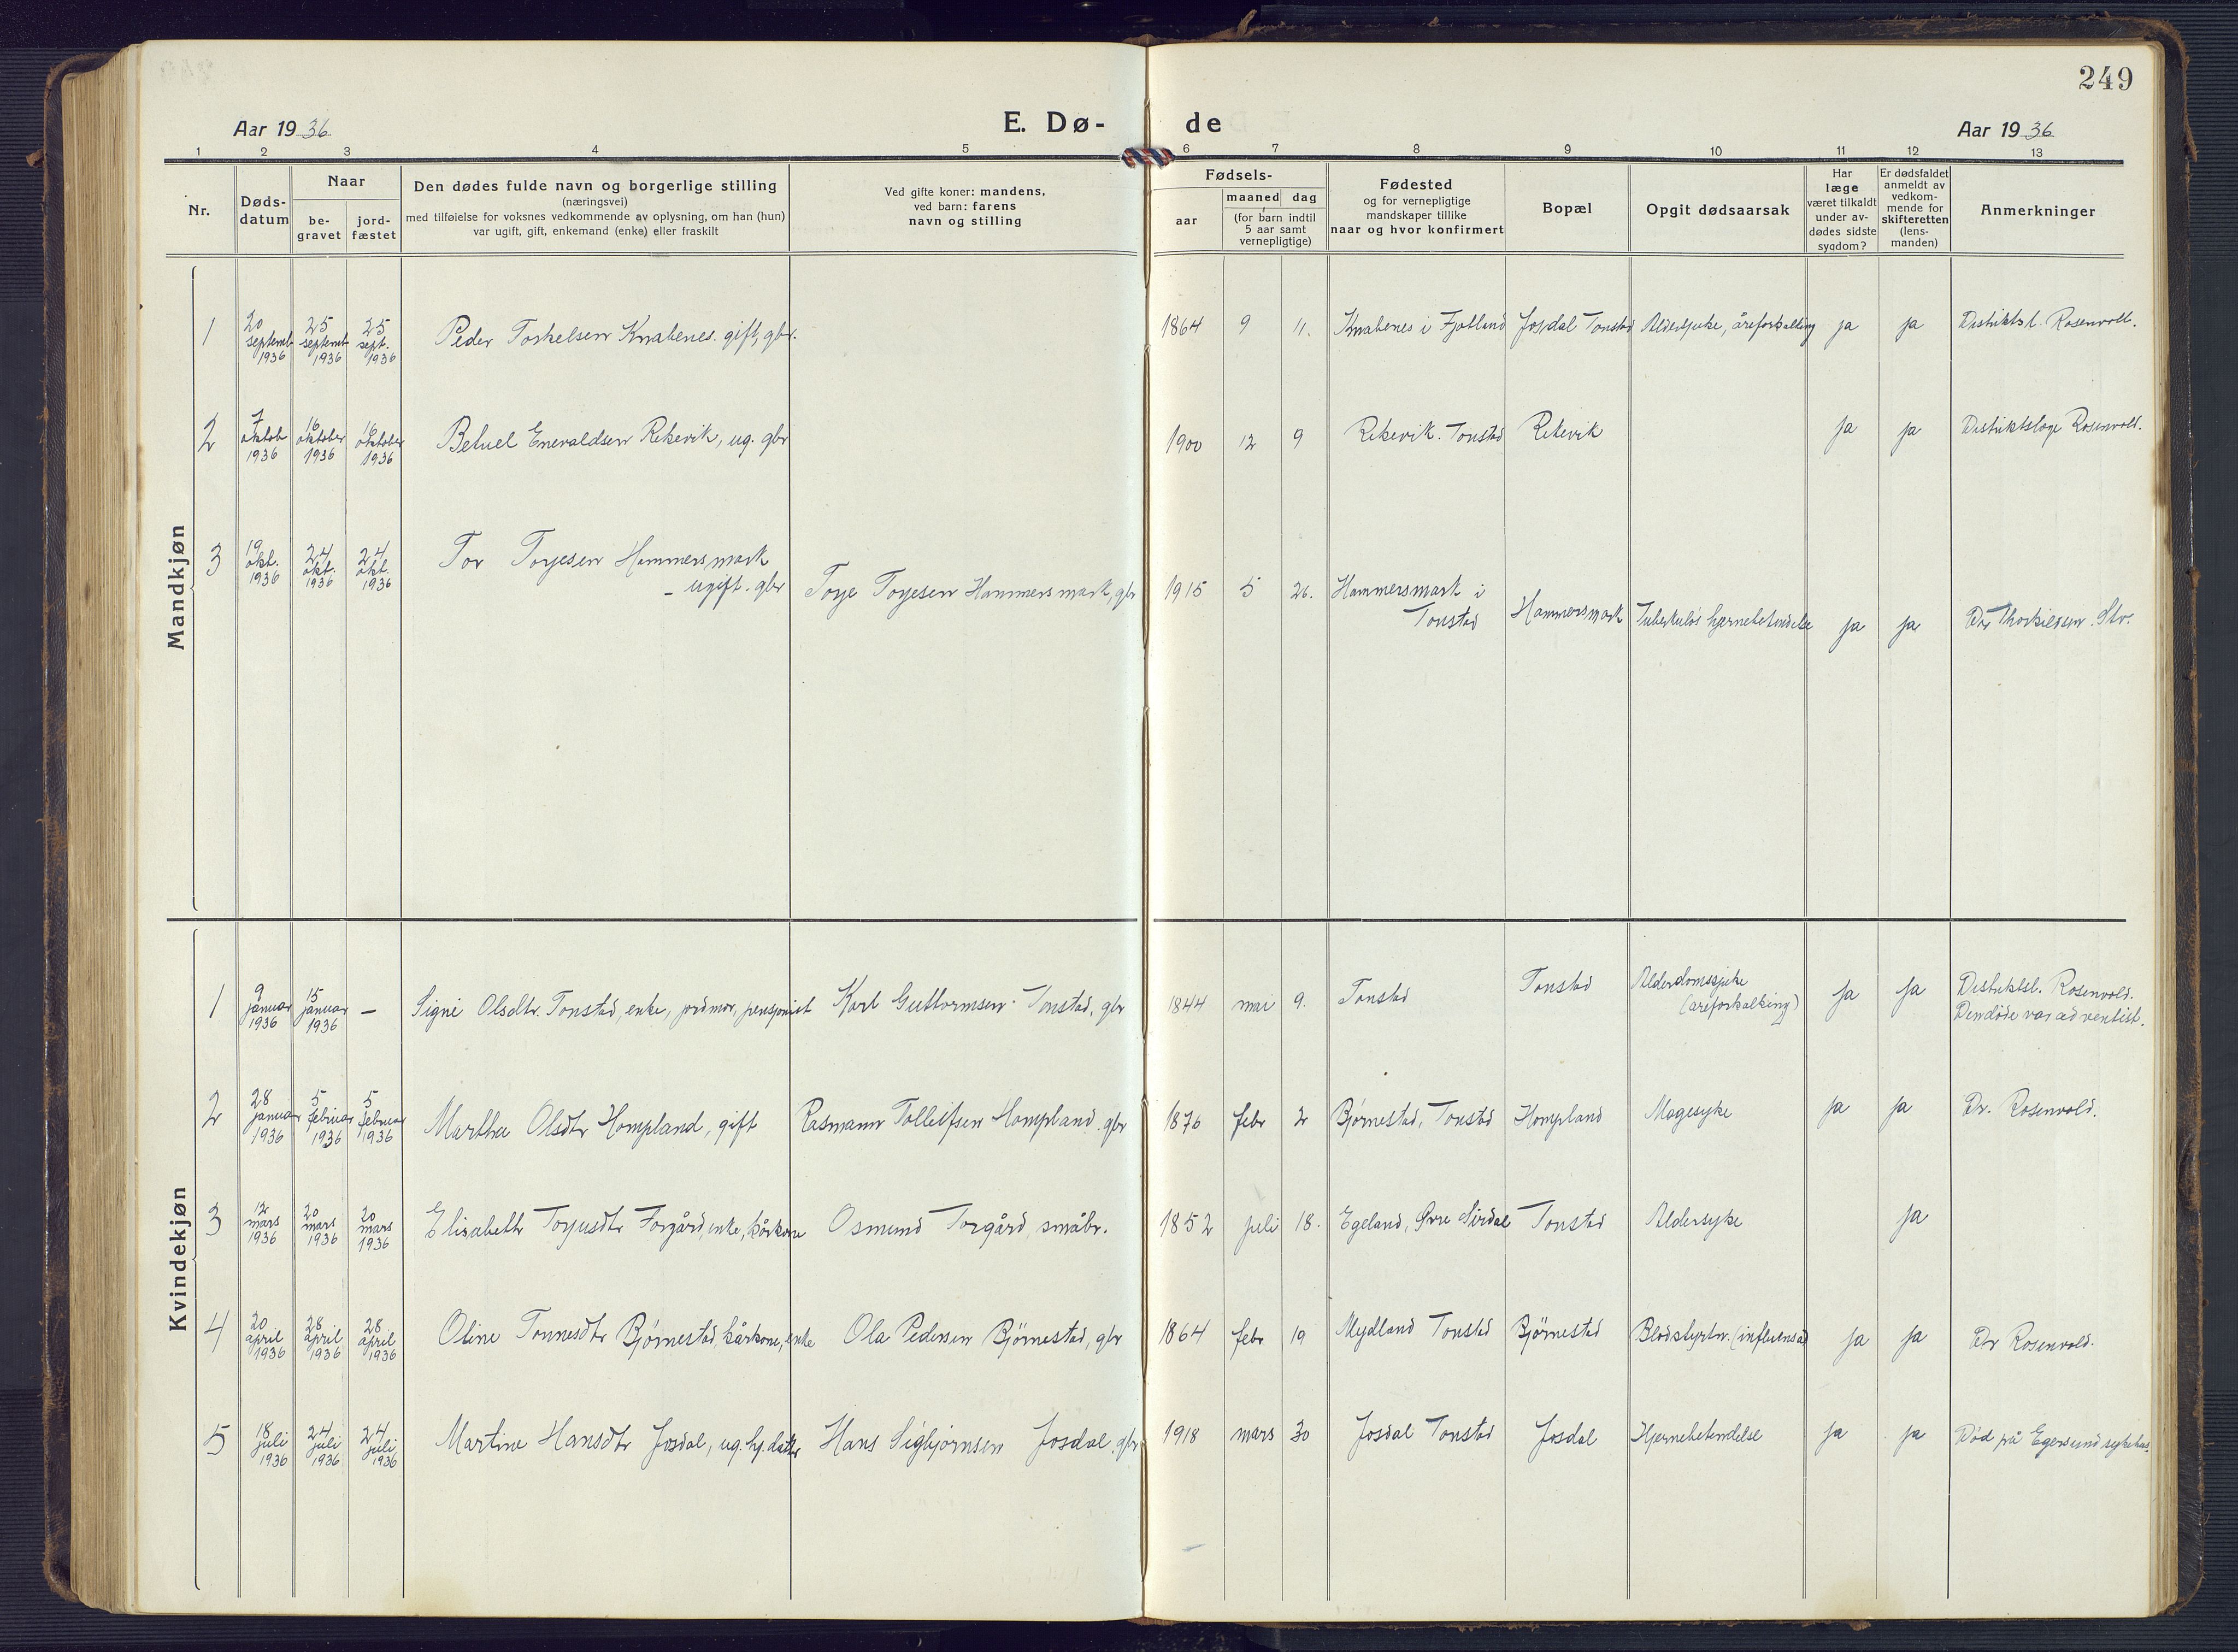 249
Aar 1936
E. Dø-
de
Aar 1936
1 2 3 4 5 6 7 8 9 10 11 12 13
Nr.
Døds-
datum
Naar
be-
gravet
jord-
fæstet
Den dødes fulde navn og borgerlige stilling
(næringsvei)
med tilføielse for voksnes vedkommende av oplysning, om han (hun)
var ugift, gift, enkemand (enke) eller fraskilt
Ved gifte koner: mandens,
ved barn: farens
navn og stilling
Fødsels-
aar
maaned dag
(for barn indtil
5 aar samt
vernepligtige)
Fødested
og for vernepligtige
mandskaper tillike
naar og hvor konfirmert
Bopæl
Opgit dødsaarsak
Har
læge
været tilkaldt
under av-
dødes sidste
sygdom?
Er dødsfaldet
anmeldt av
vedkom-
mende for
skifteretten
(lens-
manden)
Anmerkninger
Mandkjøn
1
20
septemb
1936
25
septemb
1936
25
sept.
1936
Peder Torkelsen Knabenes. gift, gbr.
1864 9 11.
Knabenes i Fjotland
Josdal Tonstad
Aldersjuke, åreforkalking
ja
ja
Distriktsl. Rosenvold.
2
7
oktob
1936
16
oktober
1936
16
oktober
1936
Betuel Enevaldsen Rekevik, ug. gbr
1900 12 9
Rekevik. Tonstad
Rekevik
ja
ja
Distriktslæge Rosenvold.
3
19
okt.
1936
24
okt.
1936
24
okt.
1936
Tor Torjesen Hammersmark
- ugift. gbr
Torje Torjesen Hammersmark, gbr
1915 5 26.
Hammersmark i
Tonstad
Hammersmark
Tuberkuløs hjernebetendelse
ja
ja
Dr Thorkildsen. Stv.
Kvindekjøn
1
9
januar
1936
15
januar
1936
—
Signe Olsdtr. Tonstad, enke, jordmor, pensjonist
Karl Guttormsen Tonstad, gbr
1844 mai 9.
Tonstad
Tonstad
Alderdomssjuke
(åreforkalking)
ja
ja
Distriktsl. Rosenvold.
Den døde var adventist.
2
28
januar
1936
5
februar
1936
5
februar
1936
Martha Olsdtr Hompland, gift
Rasmann Tolleifsen Hompland. gbr
1876 febr 2
Bjørnestad, Tonstad
Hompland
Magesyke
ja
ja
Dr. Rosenvold.
3
12
mars
1936
20
mars
1936
20
mars
1936
Elisabeth Torjusdtr Torgård, enke, kårkone
Osmund Torgård, småbr.
1852 juli 18.
Egeland, Øvre Sirdal
Tonstad
Aldersyke
ja
4
20
april
1936
28
april
1936
28
april
1936
Oline Tonnesdtr Bjørnestad, kårkone, enke
Ola Pedersen Bjørnestad, gbr
1864 febr 19
Mydland Tonstad
Bjørnestad
Blodstyrtn. (influensa)
ja
ja
Dr Rosenvold.
5
18
juli
1936
24
juli
1936
24
juli
1936
Martine Hansdtr Josdal, ug. hj. datter
Hans Sigbjørnsen Josdal. gbr
1918 mars 30
Josdal Tonstad
Josdal
Hjernebetendelse
ja
ja
Død på Egersund sykehus.